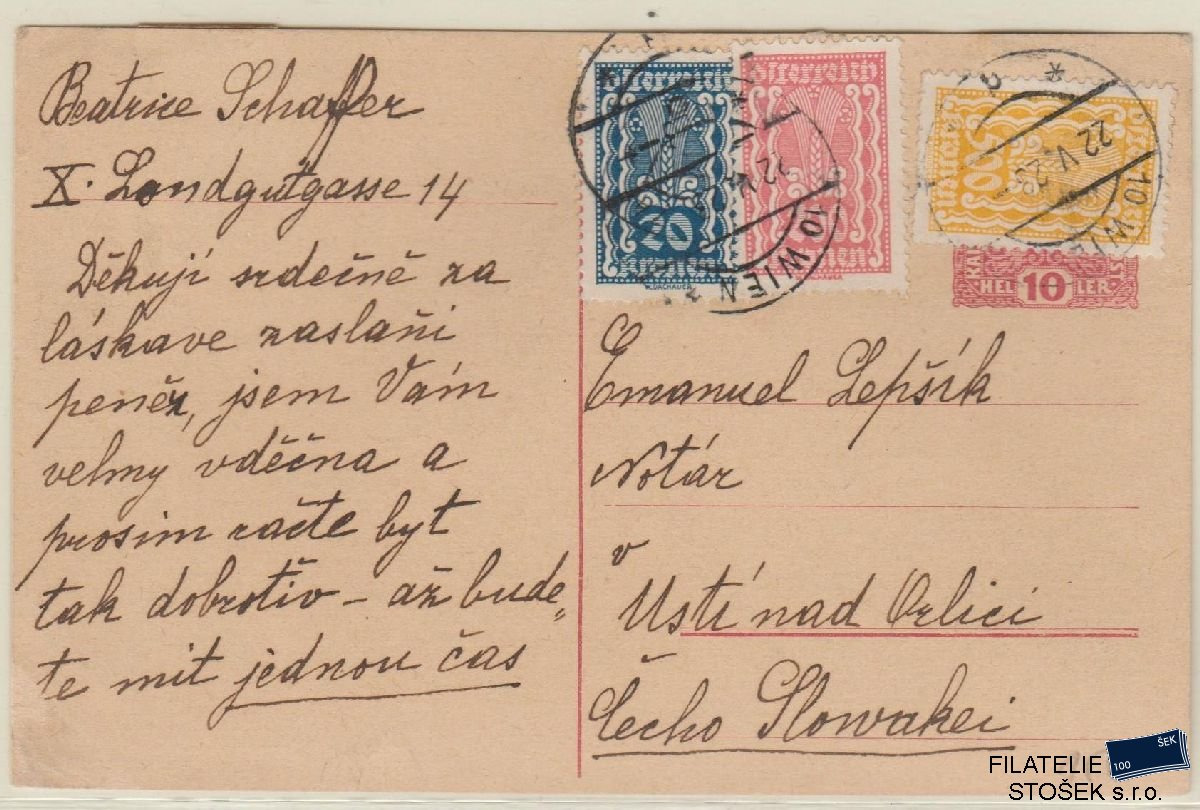 Beatrice Schaffer
X. Landgutgasse 14
Děkuji srdečně za
láskave zaslaňi
peněz, jsem Vám
velmy vděčna a
prosim račte byt
tak dobrotiv – až bude„
te mit jednou čas
Österreich
20
Kronen
W. DACHAUER
Österreich
10 WIEN
22 VI
500
10 WIE
22 V
HEL 10 LER
Emanuel Lepšík
Notár
v
Ustí nad Orlici
Čecho Slowakei
100 ŠEK
FILATELIE
STOŠEK s.r.o.